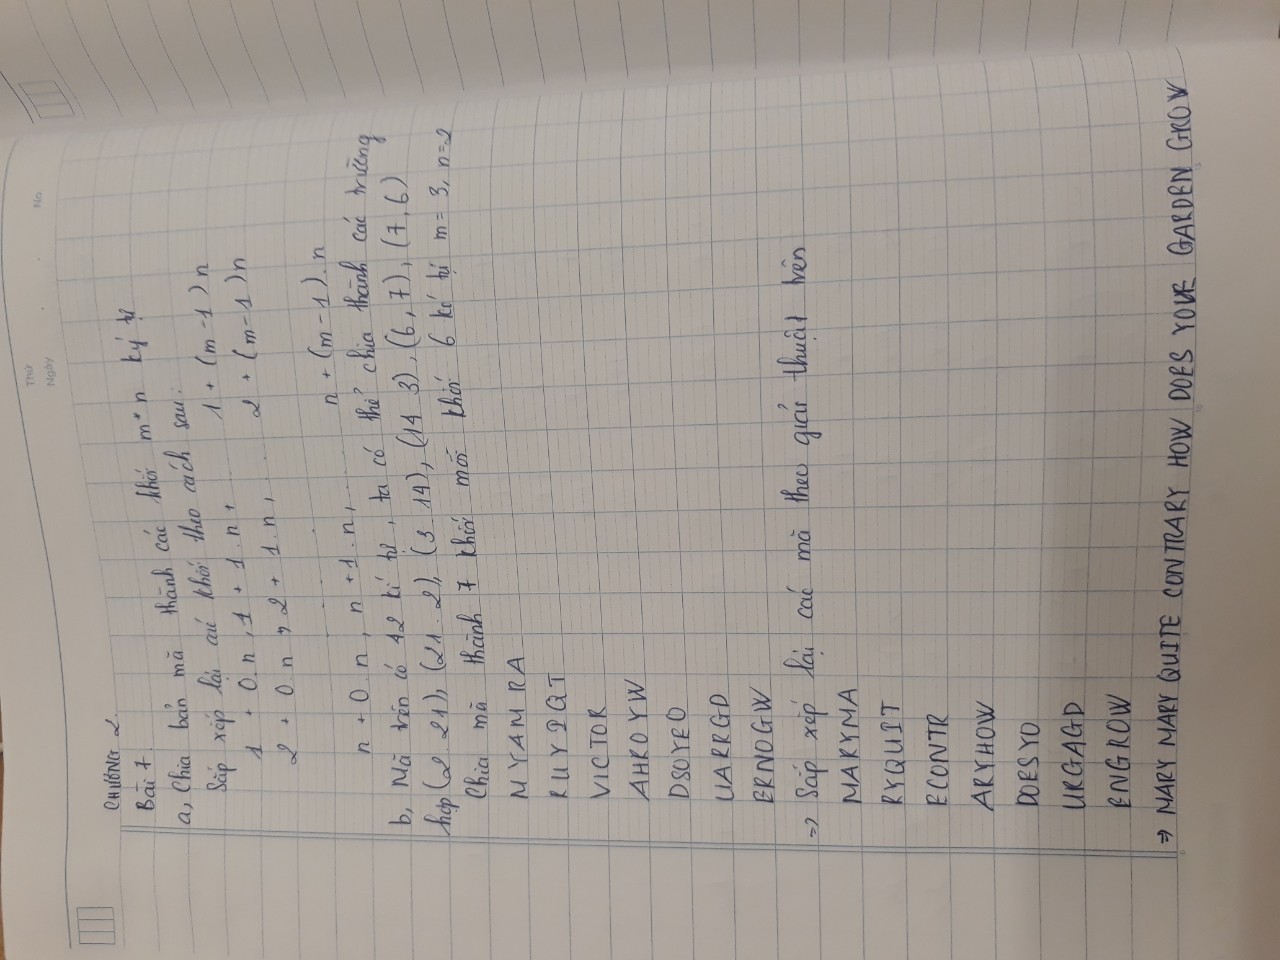 Thứ
Ngày
No.
CHƯƠNG 2.
Bài 7.
a, Chia bản mã thành các khối m*n ký tự
Sắp xếp lại các khối theo cách sau:
1 + 0.n, 1 + 1.n, ... 1 + (m-1)n
2 + 0.n, 2 + 1.n, ... 2 + (m-1)n
n + 0.n, n+1.n, ... n + (m-1).n
b, Mã trên có 42 kí tự, ta có thể chia thành các trường
hợp (2. 21), (21. 2), (3 14), (14 3), (6, 7), (7, 6)
Chia mã thành 7 khối mỗi khối 6 kí tự m = 3, n=2
MYAMRA
RUYIQT
VICTOR
AHROYW
DSOYEO
UARRGD
ERNOGW
=> Sắp xếp lại các mã theo giải thuật trên
MARYMA
RYQUIT
ECONTR
ARYHOW
DOESYO
URGAGD
ENGROW
=> MARY MARY QUITE CONTRARY HOW DOES YOUR GARDEN GROW